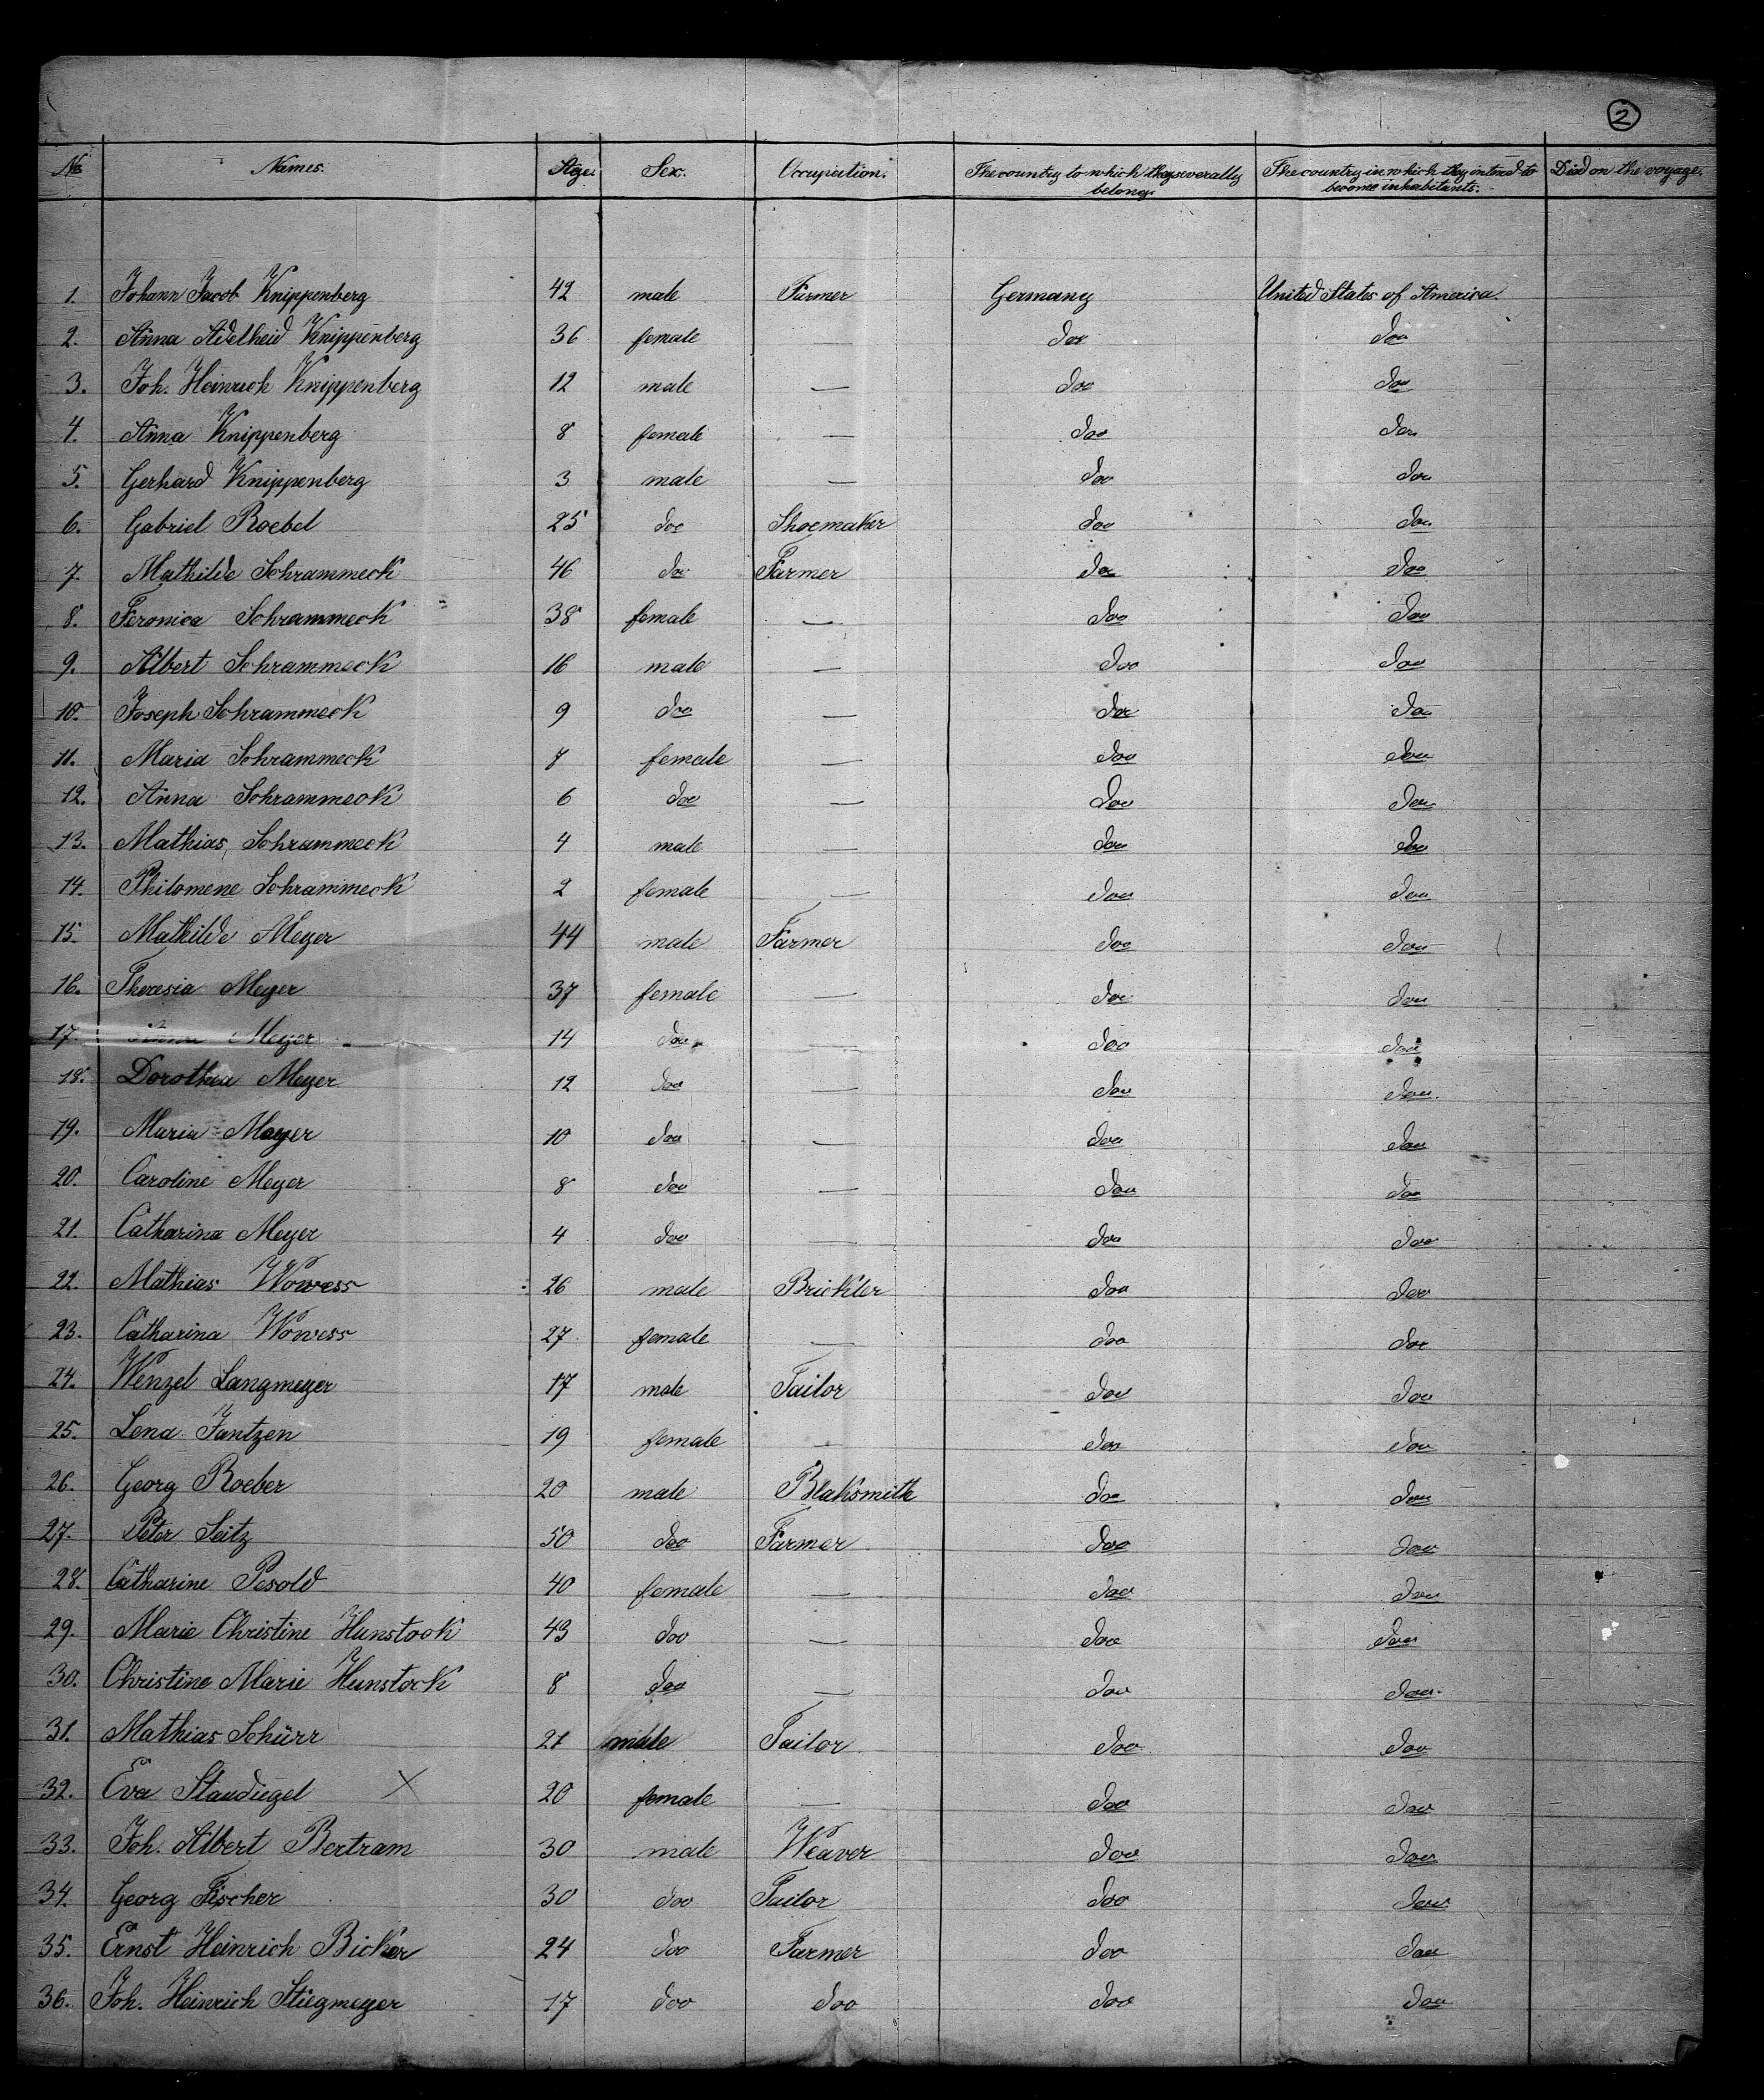 2
No. Names. Age. Sex. Occupation. The country to which they severally belong. The country in which they intend to become inhabitants. Died on the voyage.
1. Johann Jacob Knippenberg 42 male Farmer Germany United States of America.
2. Anna Adelheid Knippenberg 36 female — doo doo
3. Joh. Heinrich Knippenberg 12 male — doo doo
4. Anna Knippenberg 8 female — doo doo
5. Gerhard Knippenberg 3 male — doo doo
6. Gabriel Roebel 25 doo Shoemaker doo doo
7. Mathilde Schrammeck 46 doo Farmer doo doo
8. Feronica Schrammeck 38 female — doo doo
9. Albert Schrammeck 16 male — doo doo
10. Joseph Schrammeck 9 doo — doo doo
11. Maria Schrammeck 7 female — doo doo
12. Anna Schrammeck 6 doo — doo doo
13. Mathias Schrammeck 4 male — doo doo
14. Philomene Schrammeck 2 female — doo doo
15. Mathilde Meyer 44 male Farmer doo doo
16. Theresia Meyer 37 female — doo doo
17. Meyer 14 doo — doo doo
18. Dorothea Meyer 12 doo — doo doo
19. Maria Meyer 10 doo — doo doo
20. Caroline Meyer 8 doo — doo doo
21. Catharina Meyer 4 doo — doo doo
22. Mathias Wowess 26 male Brickler doo doo
23. Catharina Wowess 27 female — doo doo
24. Wenzel Langmeyer 17 male Tailor doo doo
25. Lena Jantzen 19 female — doo doo
26. Georg Roeber 20 male Blaksmith doo doo
27. Peter Seitz 50 doo Farmer doo doo
28. Catharine Pesold 40 female — doo doo
29. Marie Christine Hunstock 43 doo — doo doo
30. Christine Marie Hunstock 8 doo — doo doo
31. Mathias Schürr 21 male Tailor doo doo
32. Eva Staudiegel X 20 female — doo doo
33. Joh. Albert Bertram 30 male Weaver doo doo
34. Georg Fischer 30 doo Tailor doo doo
35. Ernst Heinrich Bicker 24 doo Farmer doo doo
36. Joh. Heinrich Stiegmeyer 17 doo doo doo doo